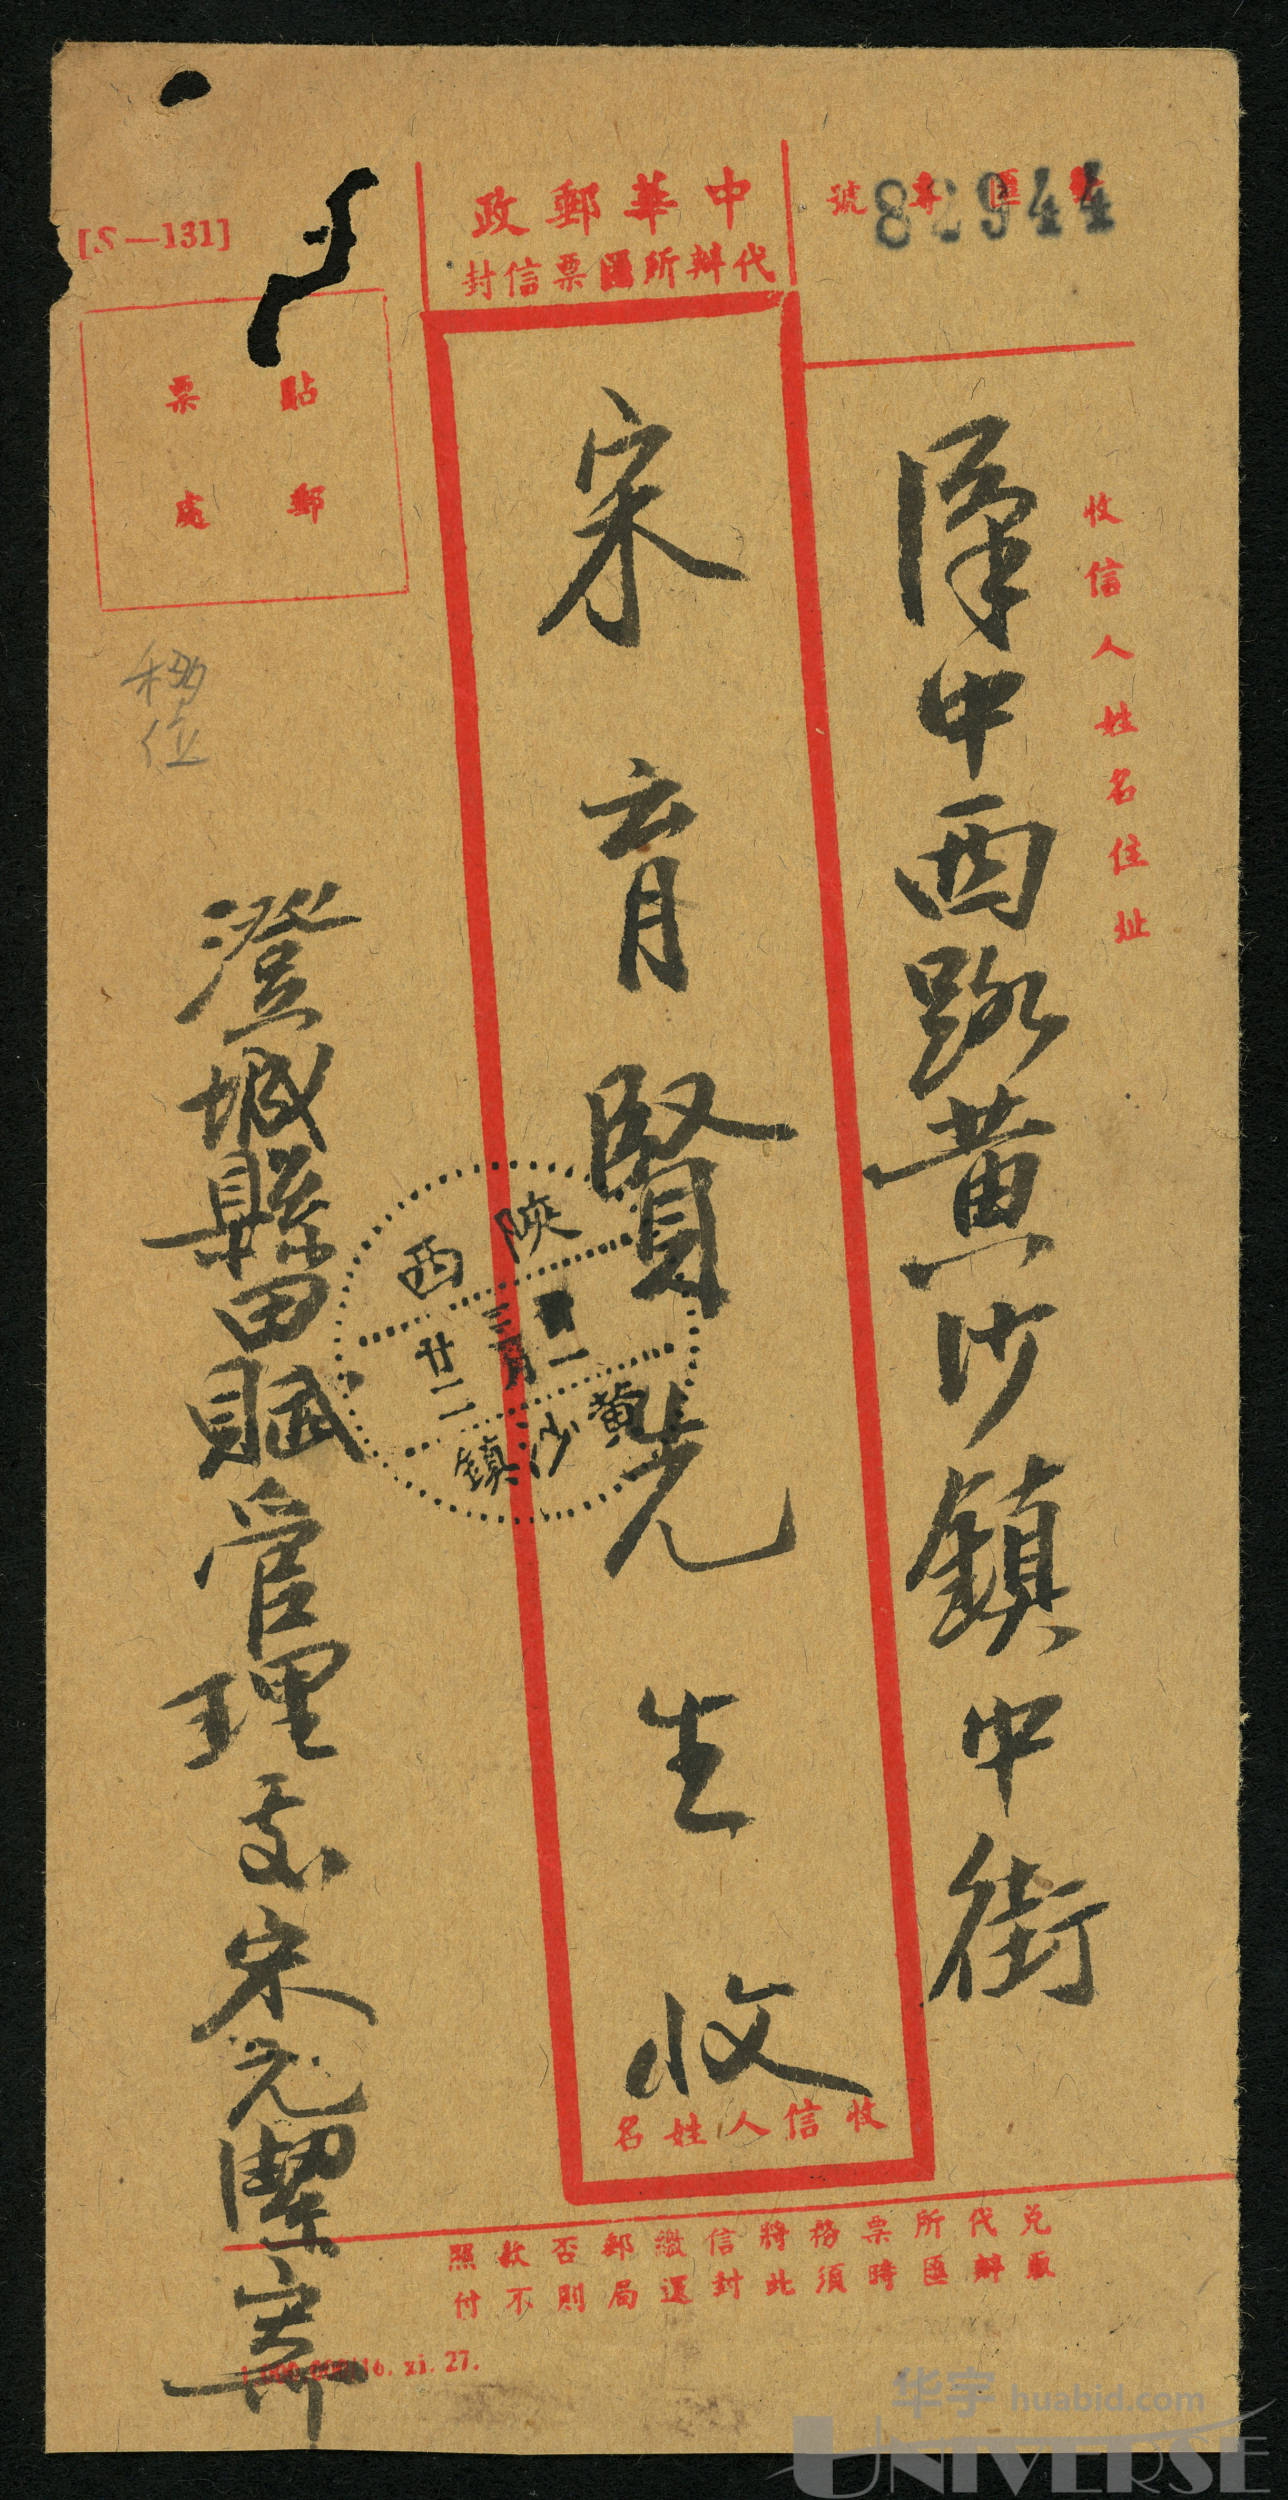 [S—131]
中華郵政
代辦所匯票信封
匯票
號
82944
貼郵
票處
收信人姓名住址
漢中西路黄沙鎮中街
宋育賢先生 收
收信人姓名
陝西
廿二
三月
一
黄沙鎮
移位
澄城縣田賦管理處宋元潔寄
兑取代辦所匯票時務須將此信封繳還郵局否則不付款照
16. xi. 27.
华宇 huabid.com
UNIVERSE